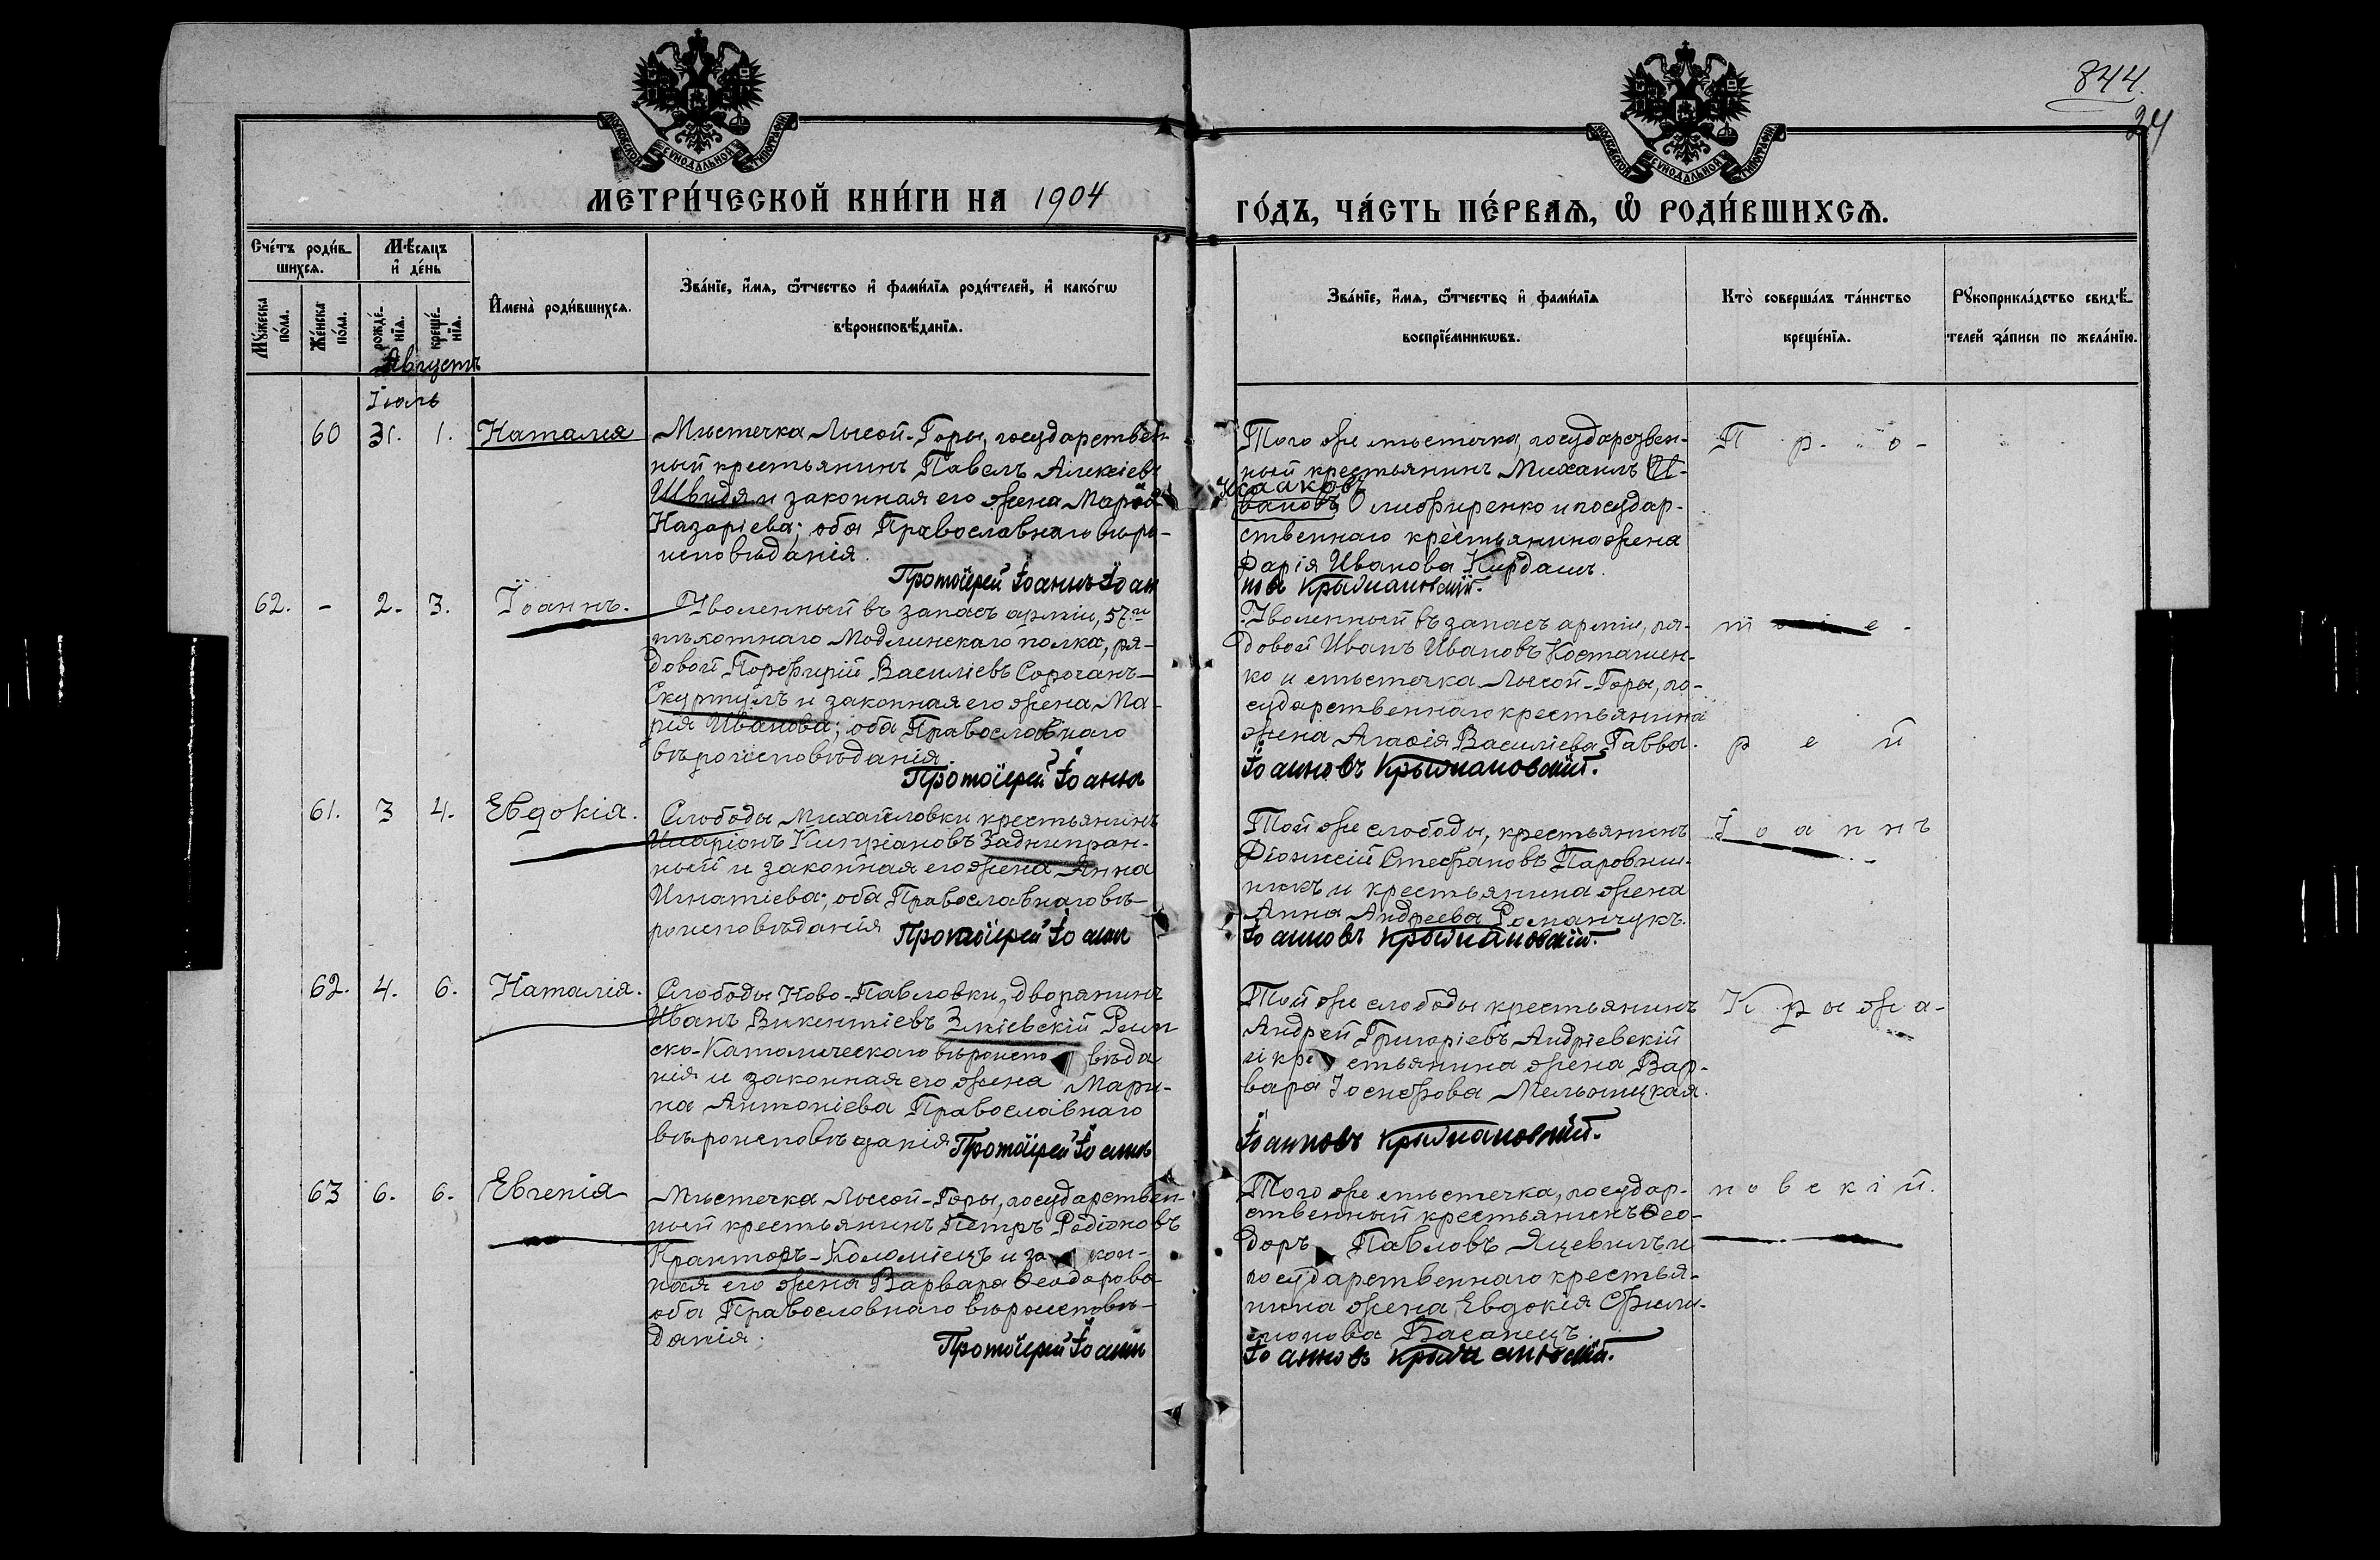 844.
24
МОСКОВСКОЙ СѴНОДАЛЬНОЙ ТИПОГРАФІИ
МЕТРИ́ЧЕСКОЙ КНИ́ГИ НА 1904
МОСКОВСКОЙ СѴНОДАЛЬНОЙ ТИПОГРАФІИ
ГО́ДЪ, ЧА́СТЬ ПЕ́РВАѦ, Ѡ РОДИ́ВШИХСѦ.
Сче́тъ роди́в-
шихсѧ.
Мѣ́сѧцъ
и҆ де́нь
Мꙋ́жеска
по́ла.
Же́нска
по́ла.
рожде́-
нїѧ.
креще́-
нїѧ.
И҆мена̀ роди́вшихсѧ.
Зва́нїе, и҆́мѧ, ѻ҆́тчество и҆ фами́лїѧ роди́телей, и҆ како́гѡ
вѣроисповѣ́данїѧ.
Зва́нїе, и҆́мѧ, ѻ҆́тчество и҆ фами́лїѧ
воспрїе́мникѡвъ.
Кто̀ соверша́лъ та́инство
креще́нїѧ.
Рꙋкоприкла́дство свидѣ́-
телей за́писи по жела́нїю.
Августъ
Іюль
60 31. 1. Наталія
Мѣстечка Лысой-Горы, государствен-
ный крестьянинъ Павелъ Алексіевъ
Швидя и законная его жена Марія
Назаріева; оба Православнаго вѣро-
исповѣданія.
Протоіерей Іоаннъ Іоан
Того же мѣстечка, государствен-
ный крестьянинъ Михаилъ И-
Исааковъ
вановъ Олифиренко и государ-
ственнаго крестьянина жена
Дарія Иванова Кирдаш.
новъ Крыжановскій.
П р о-
62. - 2. 3. Іоаннъ.
Уволенный въ запасъ арміи, 57-й
пѣхотнаго Модлинскаго полка, ря-
довой Порфирій Василіевъ Сорочанъ-
Скуртулъ и законная его жена Ма-
рія Иванова; оба Православнаго
вѣроисповѣданія.
Протоіерей Іоаннъ
Уволенный въ запасъ арміи, ря-
довой Иванъ Ивановъ Косташен-
ко и мѣстечка Лысой-Горы, го-
сударственнаго крестьянина
жена Агафія Василіева Гавва.
Іоанновъ Крыжановскій.
т о і е-
р е й
61. 3 4. Евдокія.
Слободы Михайловки крестьянинъ
Иларіонъ Кипріановъ Заднипран-
ный и законная его жена Анна
Игнатіева; оба Православнаго вѣ-
роисповѣданія
Протоіерей Іоаннъ
Той же слободы, крестьянинъ
Діонисій Стефановъ Паровиш-
никъ и крестьянина жена
Анна Андреева Романчукъ.
Іоанновъ Крыжановскій.
І о а н н ъ
62. 4. 6. Наталія.
Слободы Ново-Павловки, дворянинъ
Иванъ Викентіевъ Зміевскій Рим
ско-Католическаго вѣроиспо вѣда
нія и законная его жена Мари-
на Антоніева Православнаго
вѣроисповѣданія
Протоіерей Іоаннъ
Той же слободы крестьянинъ
Андрей Григоріевъ Андріевскій
и кре стьянина жена Вар-
вара Іосифова Мельницкая.
Іоанновъ Крыжановскій.
К р ы ж а-
63 6. 6. Евгенія
Мѣстечка Лысой-Горы, государствен-
ный крестьянинъ Петръ Родіоновъ
Кранторъ-Коломіецъ и за кон-
ная его жена Варвара Ѳеодорова
оба Православнаго вѣроисповѣ-
данія.
Протоіерей Іоаннъ
Того же мѣстечка, государ-
ственный крестьянинъ Ѳео-
доръ Павловъ Яцевилъ и
государственнаго крестья-
нина жена Евдокія Фили-
монова Басанецъ.
Іоанновъ Крыжановскій.
н о в с к і й.